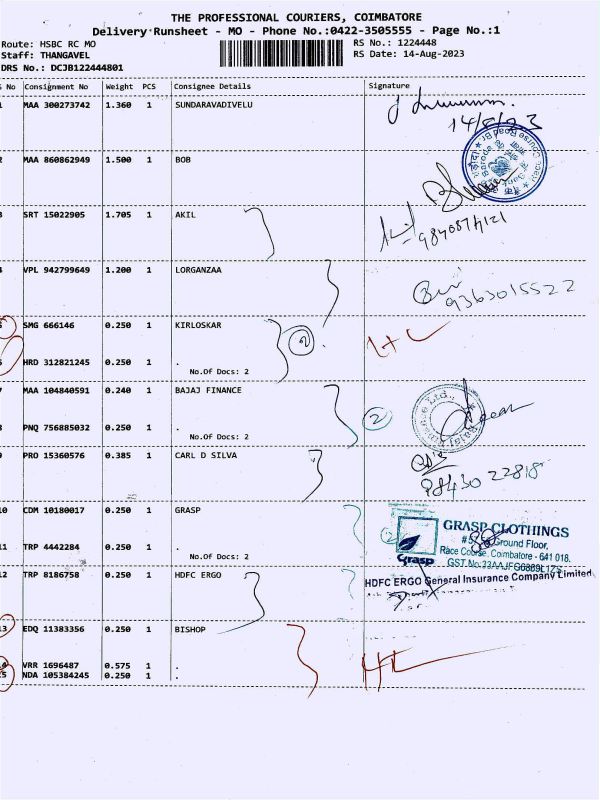 THE PROFESSIONAL COURIERS, COIMBATORE
Delivery Runsheet - MO - Phone No.:0422-3505555 - Page No.:1
Route: HSBC RC MO
RS No.: 1224448
Staff: THANGAVEL
RS Date: 14-Aug-2023
DRS No.: DCJB122444801
S No Consignment No Weight PCS Consignee Details Signature
1 MAA 300273742 1.360 1 SUNDARAVADIVELU
14/8/23
2 MAA 860862949 1.500 1 BOB
3 SRT 15022905 1.705 1 AKIL
4 VPL 942799649 1.200 1 LORGANZAA
9363015522
5 SMG 666146 0.250 1 KIRLOSKAR
2
6 HRD 312821245 0.250 1 .
No.Of Docs: 2
7 MAA 104840591 0.240 1 BAJAJ FINANCE
2
8 PNQ 756885032 0.250 1 .
No.Of Docs: 2
9 PRO 15360576 0.385 1 CARL D SILVA
98430 22818
10 CDM 10180017 0.250 1 GRASP
GRASP CLOTHINGS
Ground Floor,
11 TRP 4442284 0.250 1 .
Race Course, Coimbatore - 641 018.
No.Of Docs: 2
Grasp
12 TRP 8186758 0.250 1 HDFC ERGO
HDFC ERGO General Insurance Company Limited
13 EDQ 11383356 0.250 1 BISHOP
14 VRR 1696487 0.575 1 .
15 NDA 105384245 0.250 1 .